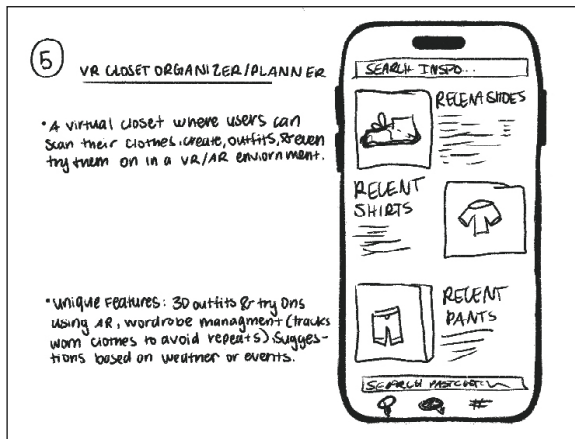 5
VR CLOSET ORGANIZER/PLANNER
• A virtual closet where users can
scan their clothes, create, outfits, & even
try them on in a VR/AR enviornment.
• Unique Features: 3D outfits & try ons
using AR, wordrobe managment (tracks
worn clothes to avoid repeats), sugges-
tions based on weather or events.
SEARCH INSPO...
RECENT SHOES
RECENT
SHIRTS
RECENT
PANTS
SEARCH